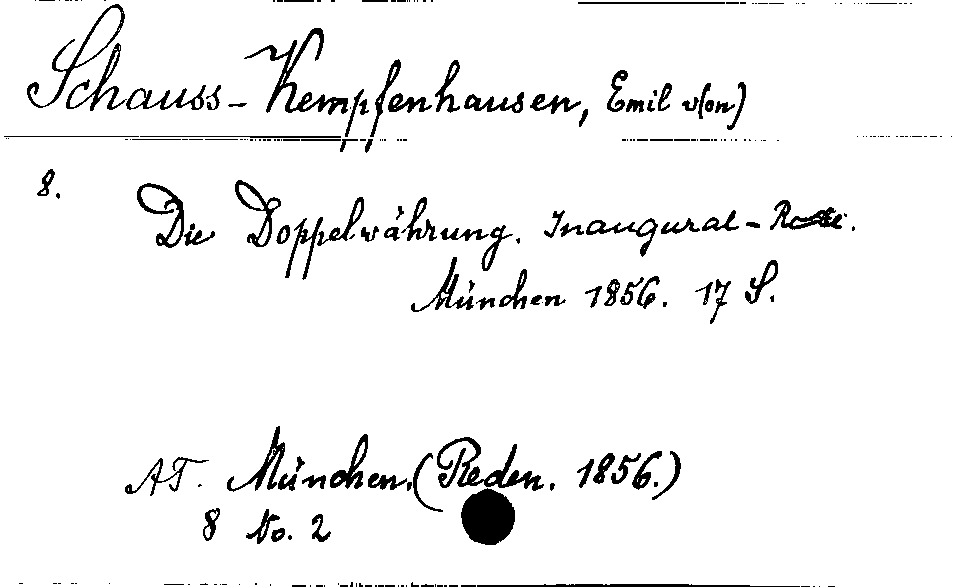 Schauss-Kempfenhausen, Emil v(on)
8.
Die Doppelwährung. Inaugural-
München 1856. 17 S.
AT. München. (Reden. 1856.)
8 No. 2